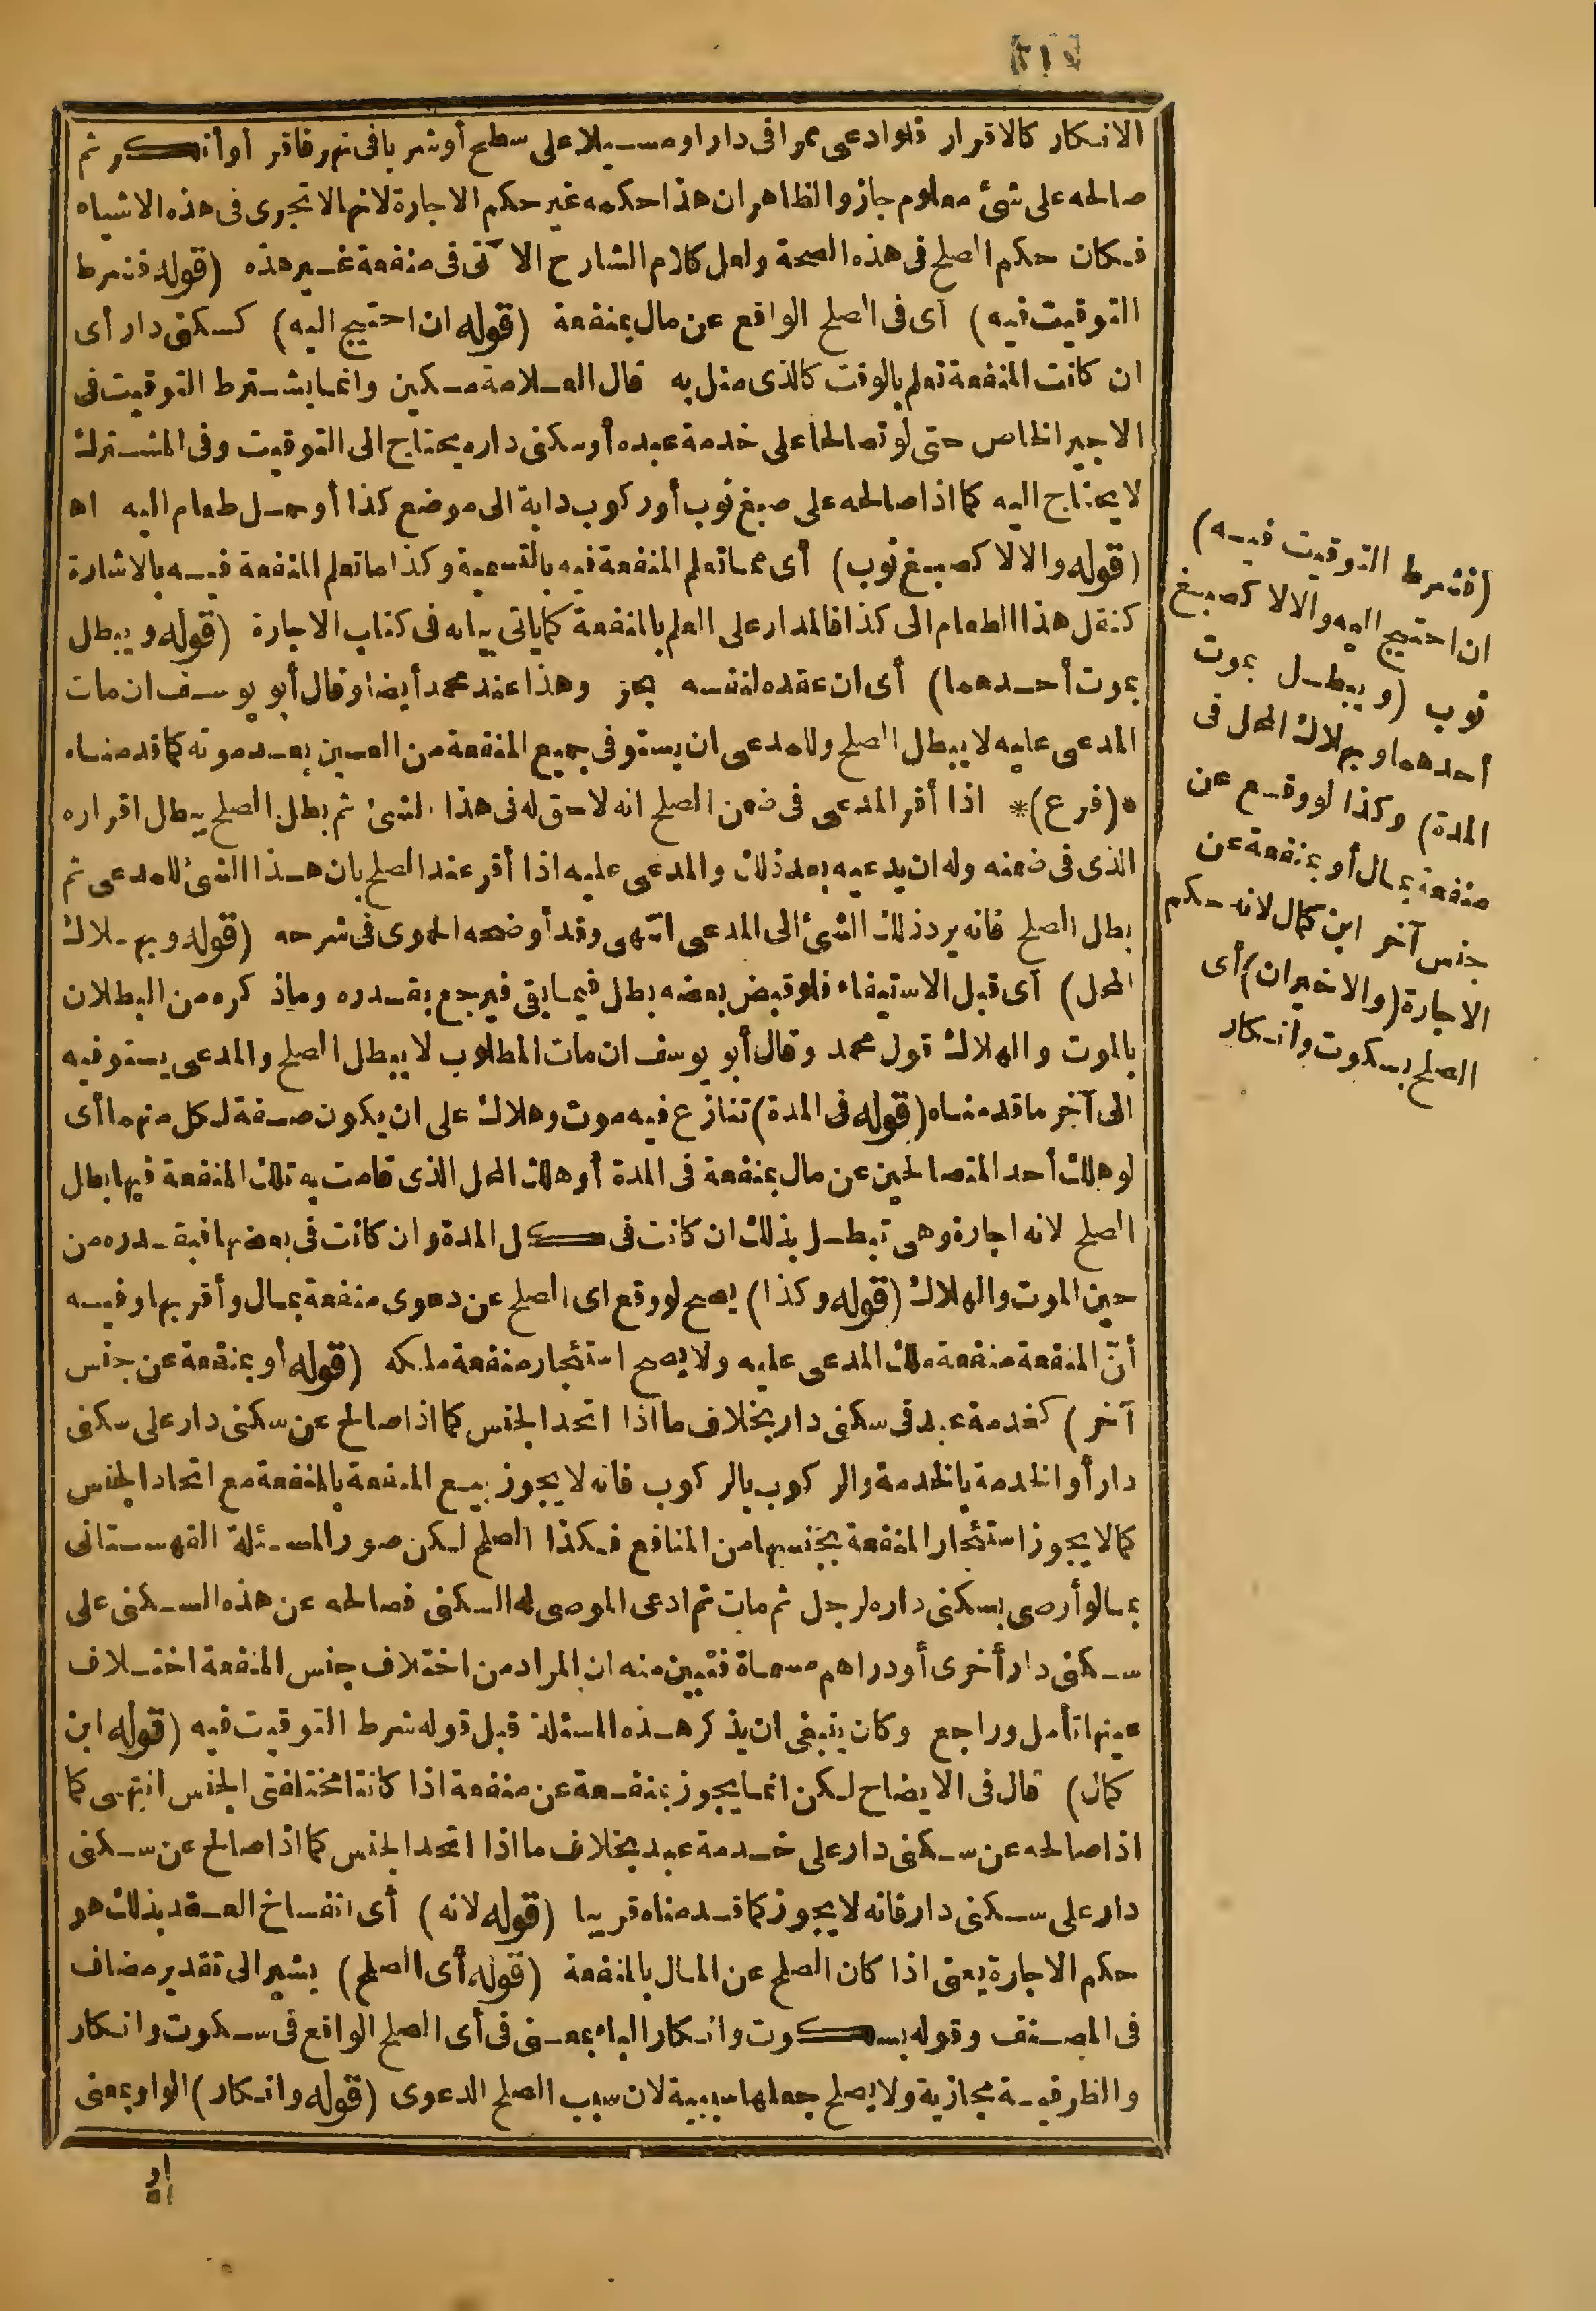 الانكار كالاقرار فلو ادعى ممرا فى دار او مسيلا على سطح أو شربا فى نهر فاقر أو أنكر ثم
صالحه على شئ معلوم جاز والظاهر ان هذا حكمه غير حكم الاجارة لانها لا تجرى فى هذه الاشياء
فكان حكم الصلح فى هذه الصحة ولعل كلام الشارح الآتى فى منفعة غير هذه (قوله فشرط
التوقيت فيه) أى فى الصلح الواقع عن مال بمنفعة (قوله ان احتيج اليه) كسكنى دار أى
ان كانت المنفعة تعلم بالوقت كالذى مثل به قال العلامة مسكين وانما يشترط التوقيت فى
الاجير الخاص حتى لو تصالحا على خدمة عبده أو سكنى داره يحتاج الى التوقيت وفى المشترك
لا يحتاج اليه كما اذا صالحه على صبغ ثوب أو ركوب دابة الى موضع كذا أو حمل طعام اليه اه
(قوله والا لا كصبغ ثوب) أى مما تعلم المنفعة فيه بالتسمية وكذا ما تعلم المنفعة فيه بالاشارة
كنقل هذا الطعام الى كذا فالمدار على العلم بالمنفعة كما يأتى بيانه فى كتاب الاجارة (قوله ويبطل
بموت أحدهما) أى ان عقده لنفسه بحر وهذا عند محمد أيضا وقال أبو يوسف ان مات
المدعى عليه لا يبطل الصلح وللمدعى ان يستوفى جميع المنفعة من العين بعد موته كما قدمناه
*(فرع)* اذا أقر المدعى فى ضمن الصلح انه لا حق له فى هذا الشئ ثم بطل الصلح يبطل اقراره
الذى فى ضمنه وله ان يدعيه بعد ذلك والمدعى عليه اذا أقر عند الصلح بان هذا الشئ للمدعى ثم
بطل الصلح فانه يرد ذلك الشئ الى المدعى انتهى وقد أوضحه الحموى فى شرحه (قوله وبهلاك
المحل) أى قبل الاستيفاء فلو قبض بعضه بطل فيما بقى فيرجع بقدره وما ذكره من البطلان
بالموت والهلاك قول محمد وقال أبو يوسف ان مات المطلوب لا يبطل الصلح والمدعى يستوفيه
الى آخر ما قدمناه (قوله فى المدة) تنازع فيه موت وهلاك على ان يكون صفة لكل منهما أى
لو هلك أحد المتصالحين عن مال بمنفعة فى المدة أو هلك المحل الذى قامت به تلك المنفعة فيها بطل
الصلح لانه اجارة وهى تبطل بذلك ان كانت فى كل المدة وان كانت فى بعضها فبقدره من
حين الموت والهلاك (قوله وكذا) يصح لو وقع اى الصلح عن دعوى منفعة بمال وأقر بها وفيه
أنّ المنفعة منفعة ملك المدعى عليه ولا يصح استئجار منفعة ملكه (قوله أو بمنفعة عن جنس
آخر) كخدمة عبد فى سكنى دار بخلاف ما اذا اتحد الجنس كما اذا صالح عن سكنى دار على سكنى
دار أو الخدمة بالخدمة والركوب بالركوب فانه لا يجوز بيع المنفعة بالمنفعة مع اتحاد الجنس
كما لا يجوز استئجار المنفعة بجنسها من المنافع فكذا الصلح لكن صور المسئلة القهستانى
بما لو أوصى بسكنى داره لرجل ثم مات ثم ادعى الموصى له السكنى فصالحه عن هذه السكنى على
سكنى دار أخرى أو دراهم مسماة فتبين منه ان المراد من اختلاف جنس المنفعة اختلاف
عينها تأمل وراجع وكان ينبغى ان يذكر هذه المسئلة قبل قوله شرط التوقيت فيه (قوله ابن
كمال) قال فى الايضاح لكن انما يجوز بمنفعة عن منفعة اذا كانتا مختلفتى الجنس انتهى كما
اذا صالحه عن سكنى دار على خدمة عبد بخلاف ما اذا اتحد الجنس كما اذا صالح عن سكنى
دار على سكنى دار فانه لا يجوز كما قدمناه قريبا (قوله لانه) أى انفساخ العقد بذلك هو
حكم الاجارة يعنى اذا كان الصلح عن المال بالمنفعة (قوله أى الصلح) يشير الى تقدير مضاف
فى المصنف وقوله بسكوت وانكار الباء بمعنى فى أى الصلح الواقع فى سكوت وانكار
والظرفية مجازية ولا يصلح جعلها سببية لان سبب الصلح الدعوى (قوله وانكار) الواو بمعنى
او
(فشرط التوقيت فيه)
ان احتيج اليه والا لا كصبغ
ثوب (ويبطل بموت
أحدهما وبهلاك المحل فى
المدة) وكذا لو وقع عن
منفعة بمال أو بمنفعة عن
جنس آخر ابن كمال لانه حكم
الاجارة (والاخيران) أى
الصلح بسكوت وانكار